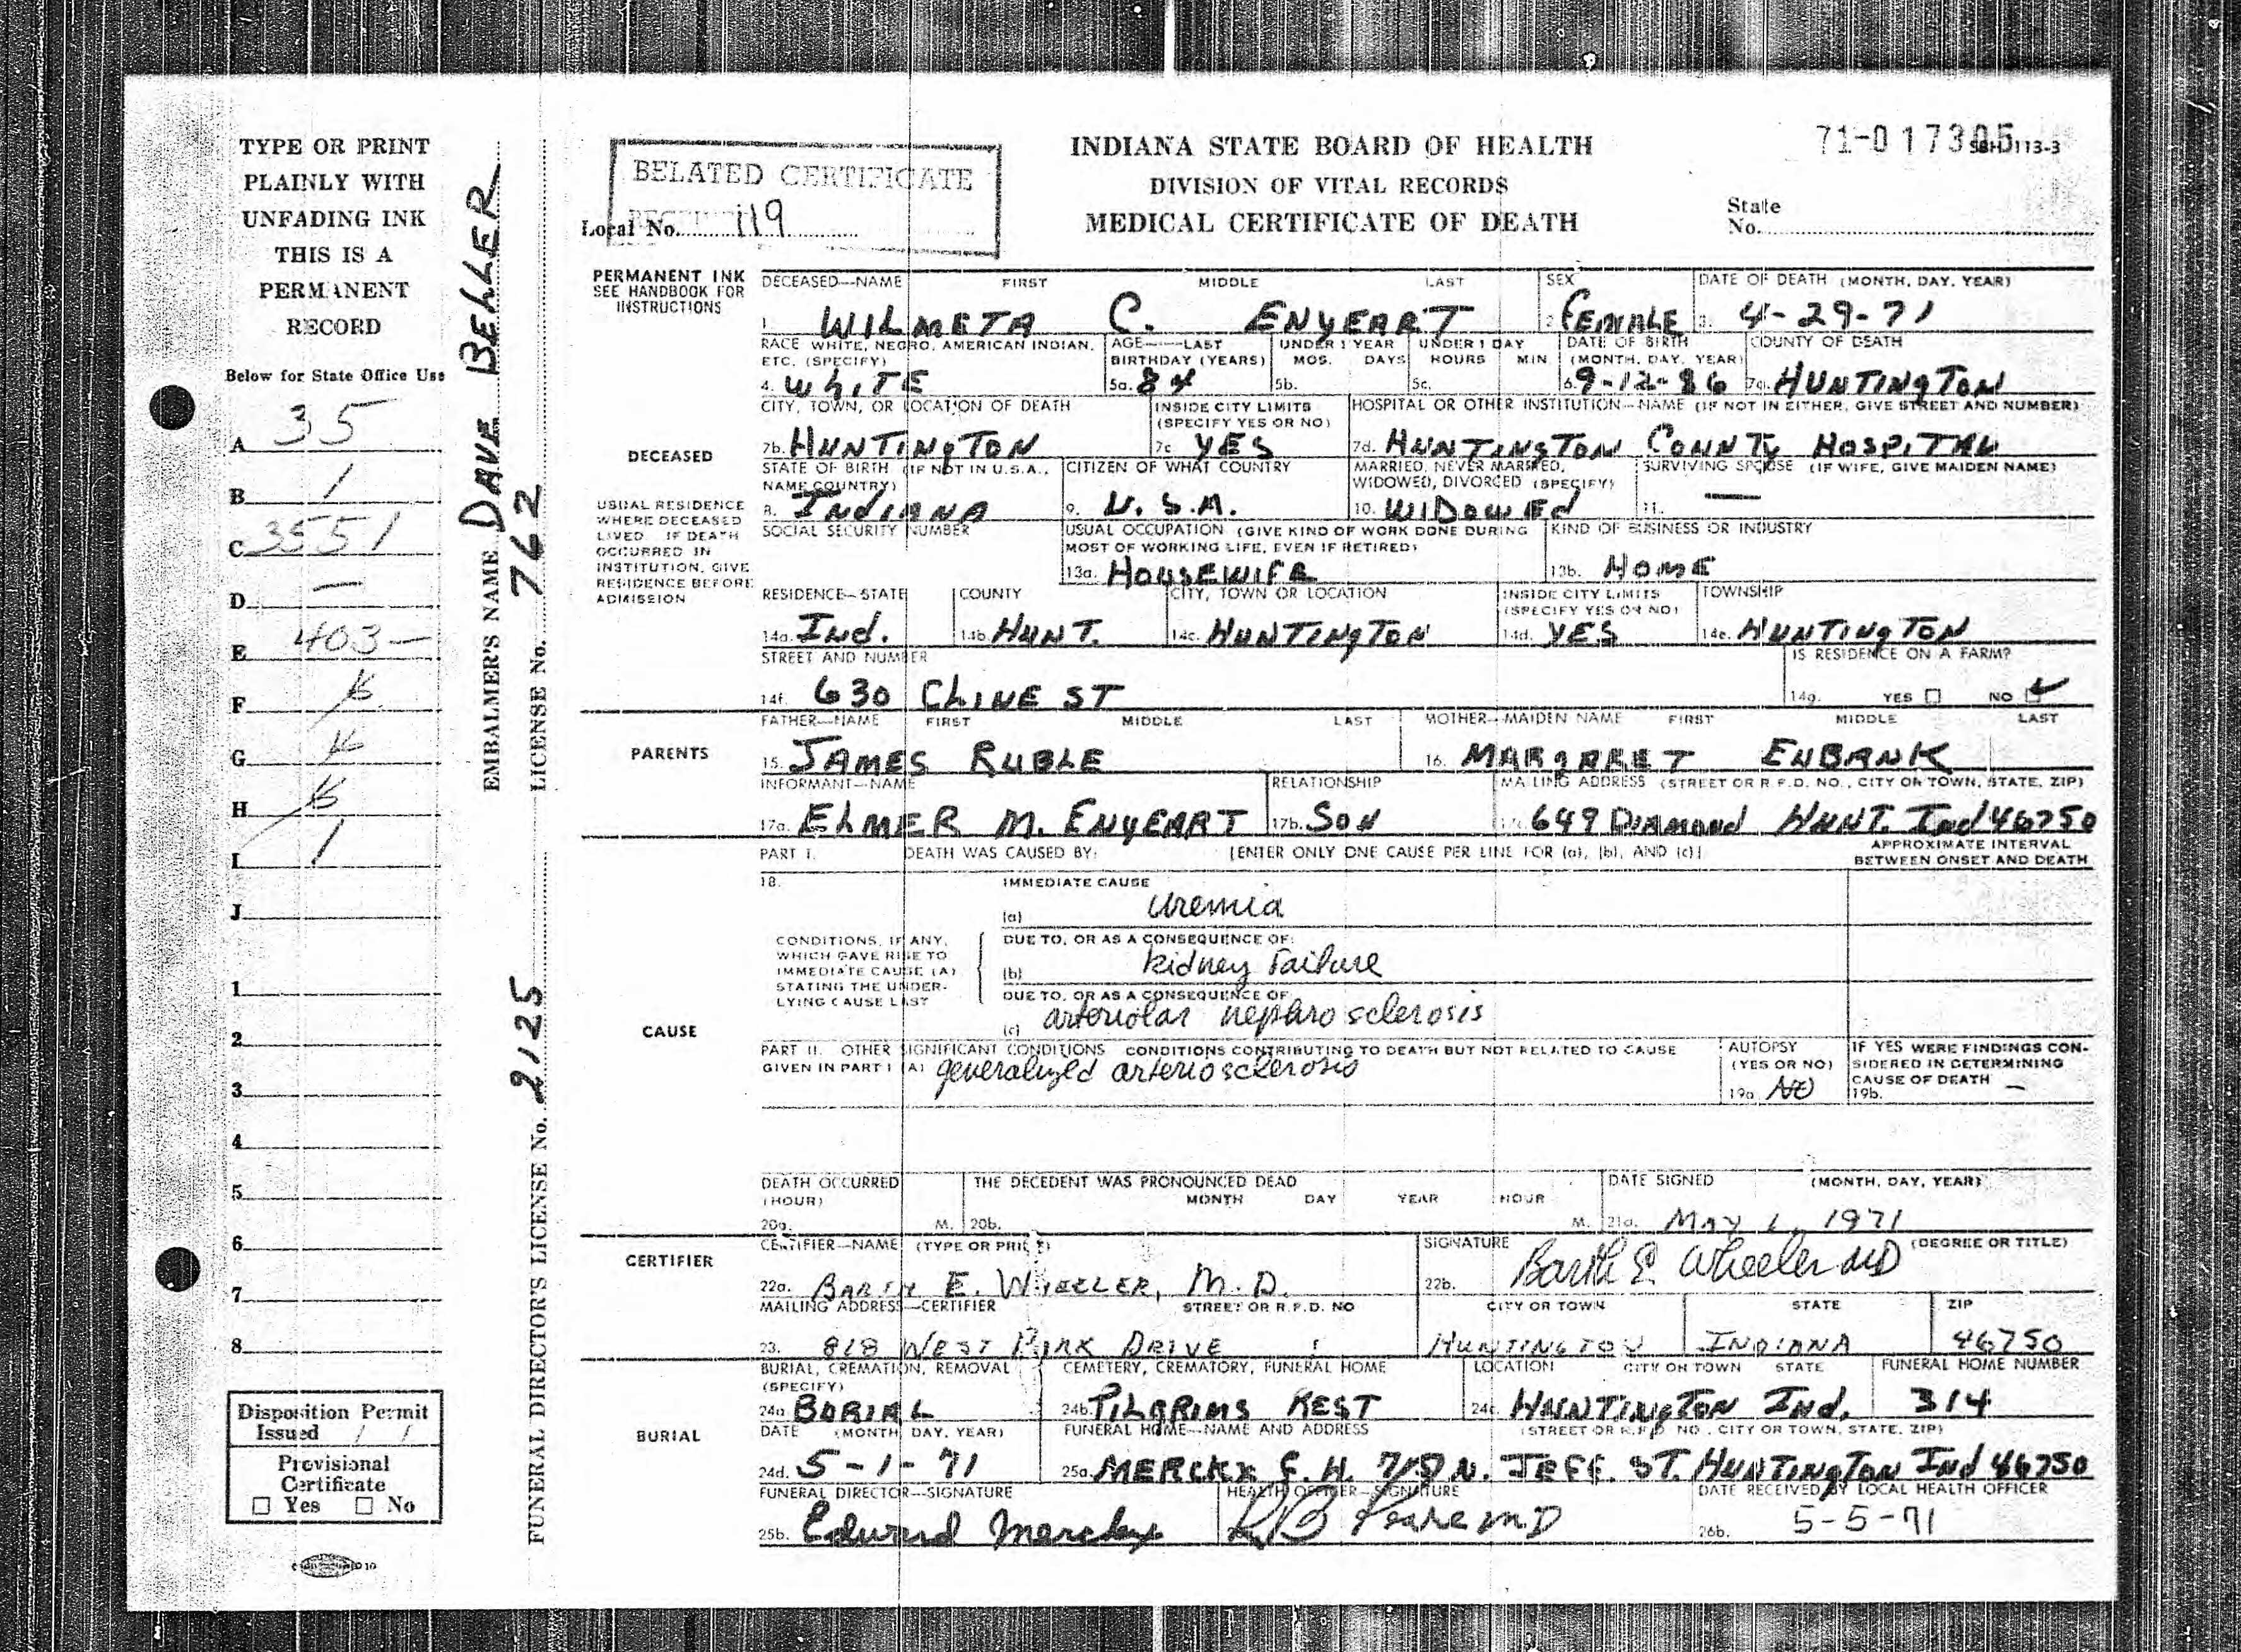 TYPE OR PRINT
PLAINLY WITH
UNFADING INK
THIS IS A
PERMANENT
RECORD
Below for State Office Use
A 35
B 1
C 3551
D —
E 403—
F
G
H
I 1
J
1
2
3
4
5
6
7
8
Disposition Permit
Issued / /
Provisional
Certificate
☐ Yes ☐ No
EMBALMER'S NAME DAVE BELLER
LICENSE No. 762
FUNERAL DIRECTOR'S LICENSE No. 2125
BELATED CERTIFICATE
Local No. 119
INDIANA STATE BOARD OF HEALTH
DIVISION OF VITAL RECORDS
MEDICAL CERTIFICATE OF DEATH
71-017305
113-3
State
No.
PERMANENT INK
SEE HANDBOOK FOR
INSTRUCTIONS
DECEASED—NAME FIRST MIDDLE LAST SEX DATE OF DEATH (MONTH, DAY, YEAR)
1. WILMETA C. ENYEART 2. FEMALE 3. 4-29-71
RACE WHITE, NEGRO, AMERICAN INDIAN, AGE—LAST UNDER 1 YEAR UNDER 1 DAY DATE OF BIRTH COUNTY OF DEATH
ETC. (SPECIFY) BIRTHDAY (YEARS) MOS. DAYS HOURS MIN. (MONTH, DAY, YEAR)
4. WHITE 5a. 84 5b. 5c. 6. 9-12-86 7a. HUNTINGTON
CITY, TOWN, OR LOCATION OF DEATH INSIDE CITY LIMITS HOSPITAL OR OTHER INSTITUTION—NAME (IF NOT IN EITHER, GIVE STREET AND NUMBER)
(SPECIFY YES OR NO)
DECEASED
7b. HUNTINGTON 7c YES 7d. HUNTINGTON COUNTY HOSPITAL
STATE OF BIRTH (IF NOT IN U.S.A., CITIZEN OF WHAT COUNTRY MARRIED, NEVER MARRIED, SURVIVING SPOUSE (IF WIFE, GIVE MAIDEN NAME)
NAME COUNTRY) WIDOWED, DIVORCED (SPECIFY)
8. INDIANA 9. U.S.A. 10. WIDOWED 11. —
USUAL RESIDENCE
WHERE DECEASED
LIVED. IF DEATH
OCCURRED IN
INSTITUTION, GIVE
RESIDENCE BEFORE
ADMISSION
SOCIAL SECURITY NUMBER USUAL OCCUPATION (GIVE KIND OF WORK DONE DURING KIND OF BUSINESS OR INDUSTRY
MOST OF WORKING LIFE, EVEN IF RETIRED)
13a. HOUSEWIFE 13b. HOME
RESIDENCE—STATE COUNTY CITY, TOWN OR LOCATION INSIDE CITY LIMITS TOWNSHIP
(SPECIFY YES OR NO)
14a. IND. 14b. HUNT. 14c. HUNTINGTON 14d. YES 14e. HUNTINGTON
STREET AND NUMBER IS RESIDENCE ON A FARM?
14f. 630 CLINE ST 14g. YES ☐ NO ☑
FATHER—NAME FIRST MIDDLE LAST MOTHER—MAIDEN NAME FIRST MIDDLE LAST
PARENTS
15. JAMES RUBLE 16. MARGARET EUBANK
INFORMANT—NAME RELATIONSHIP MAILING ADDRESS (STREET OR R.F.D. NO., CITY OR TOWN, STATE, ZIP)
17a. ELMER M. ENYEART 17b. SON 17c. 649 DIAMOND HUNT. IND 46750
PART I. DEATH WAS CAUSED BY: [ENTER ONLY ONE CAUSE PER LINE FOR (a), (b), AND (c)] APPROXIMATE INTERVAL
BETWEEN ONSET AND DEATH
18. IMMEDIATE CAUSE
(a) Uremia
CONDITIONS, IF ANY,
WHICH GAVE RISE TO
IMMEDIATE CAUSE (A)
STATING THE UNDER-
LYING CAUSE LAST
DUE TO, OR AS A CONSEQUENCE OF:
(b) kidney failure
DUE TO, OR AS A CONSEQUENCE OF:
(c) arteriolar nephrosclerosis
CAUSE
PART II. OTHER SIGNIFICANT CONDITIONS CONDITIONS CONTRIBUTING TO DEATH BUT NOT RELATED TO CAUSE
GIVEN IN PART I (A) generalized arteriosclerosis
AUTOPSY
(YES OR NO)
19a NO
IF YES WERE FINDINGS CON-
SIDERED IN DETERMINING
CAUSE OF DEATH
19b. —
DEATH OCCURRED THE DECEDENT WAS PRONOUNCED DEAD DATE SIGNED (MONTH, DAY, YEAR)
(HOUR) MONTH DAY YEAR HOUR
20a. M. 20b. M. 21a. MAY 1, 1971
CERTIFIER
CERTIFIER—NAME (TYPE OR PRINT) SIGNATURE (DEGREE OR TITLE)
22a. BARTH E. WHEELER, M.D. 22b. Barth E. Wheeler MD
MAILING ADDRESS—CERTIFIER STREET OR R.F.D. NO CITY OR TOWN STATE ZIP
23. 818 WEST PARK DRIVE HUNTINGTON INDIANA 46750
BURIAL, CREMATION, REMOVAL CEMETERY, CREMATORY, FUNERAL HOME LOCATION CITY OR TOWN STATE FUNERAL HOME NUMBER
(SPECIFY)
24a BURIAL 24b. PILGRIMS REST 24c HUNTINGTON IND. 314
BURIAL
DATE (MONTH, DAY, YEAR) FUNERAL HOME—NAME AND ADDRESS (STREET OR R.F.D. NO., CITY OR TOWN, STATE, ZIP)
24d. 5-1-71 25a. MERCKX F.H. N. JEFF. ST. HUNTINGTON IND 46750
FUNERAL DIRECTOR—SIGNATURE HEALTH OFFICER—SIGNATURE DATE RECEIVED BY LOCAL HEALTH OFFICER
25b. Edward Merckx MD 26b. 5-5-71